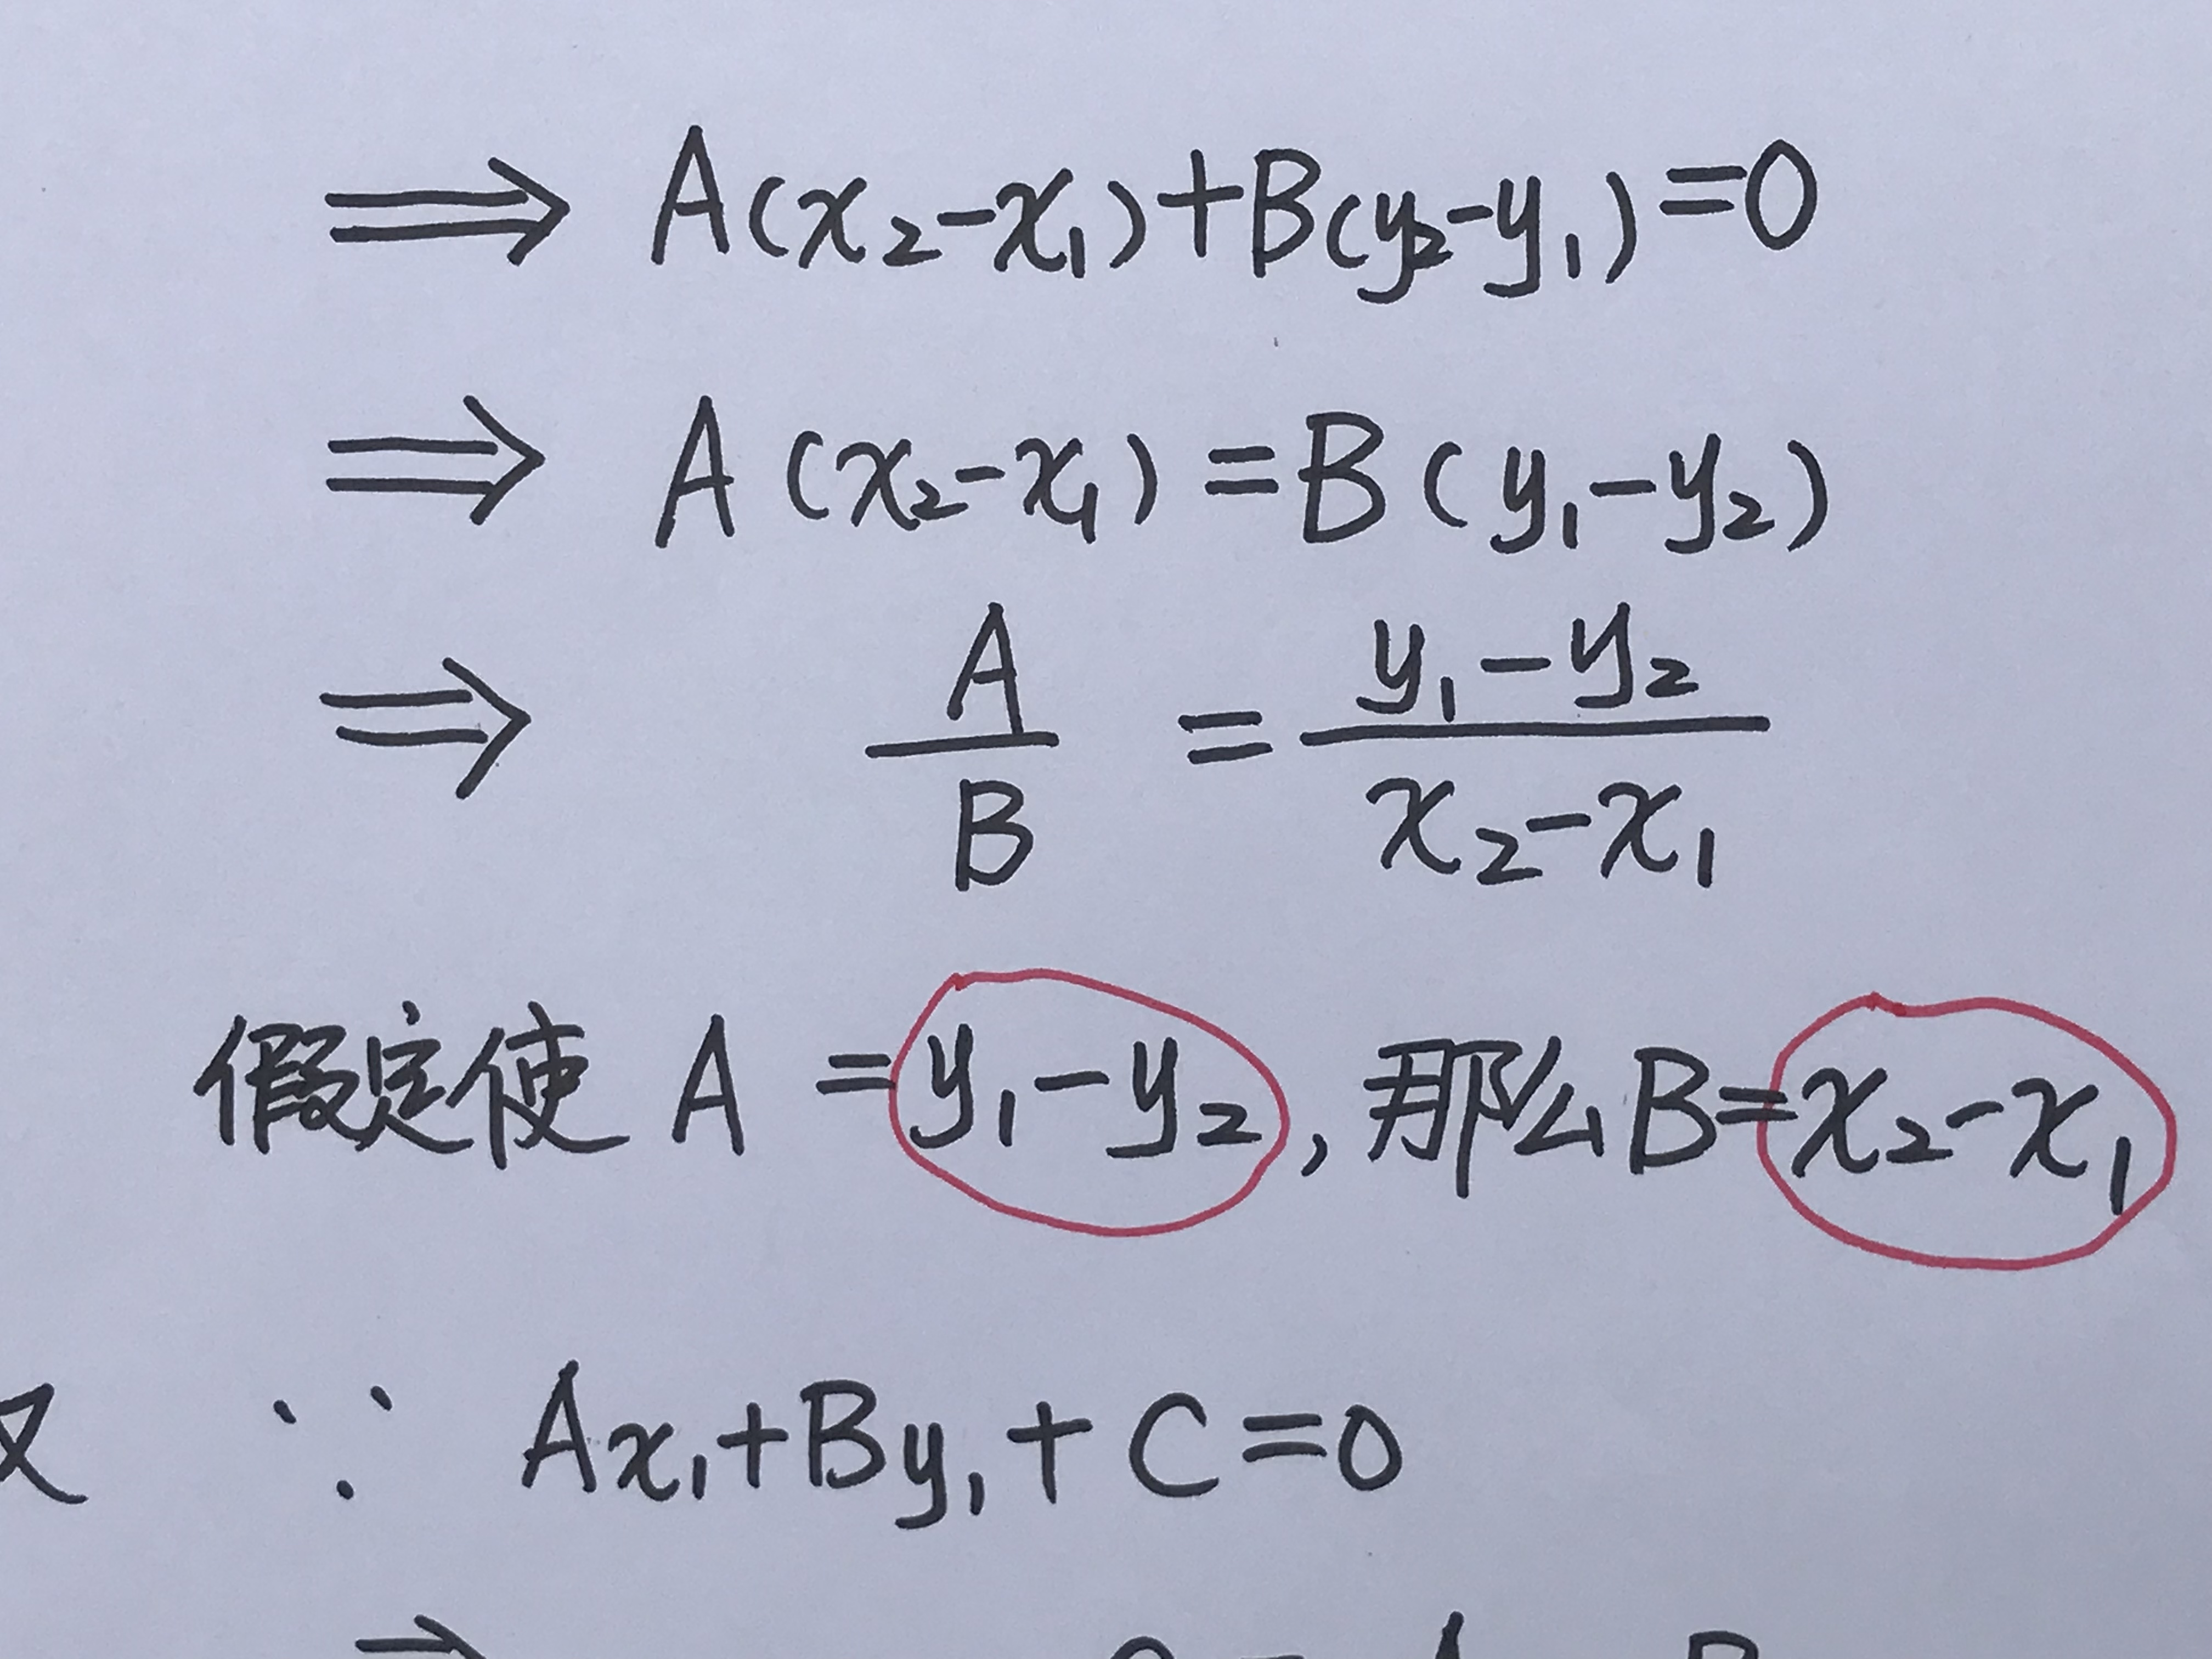 ⟹ A(x₂-x₁)+B(y₂-y₁)=0
⟹ A(x₂-x₁)=B(y₁-y₂)
⟹ A/B = (y₁-y₂)/(x₂-x₁)
假定使 A=y₁-y₂, 那么B=x₂-x₁
又 ∵ Ax₁+By₁+C=0